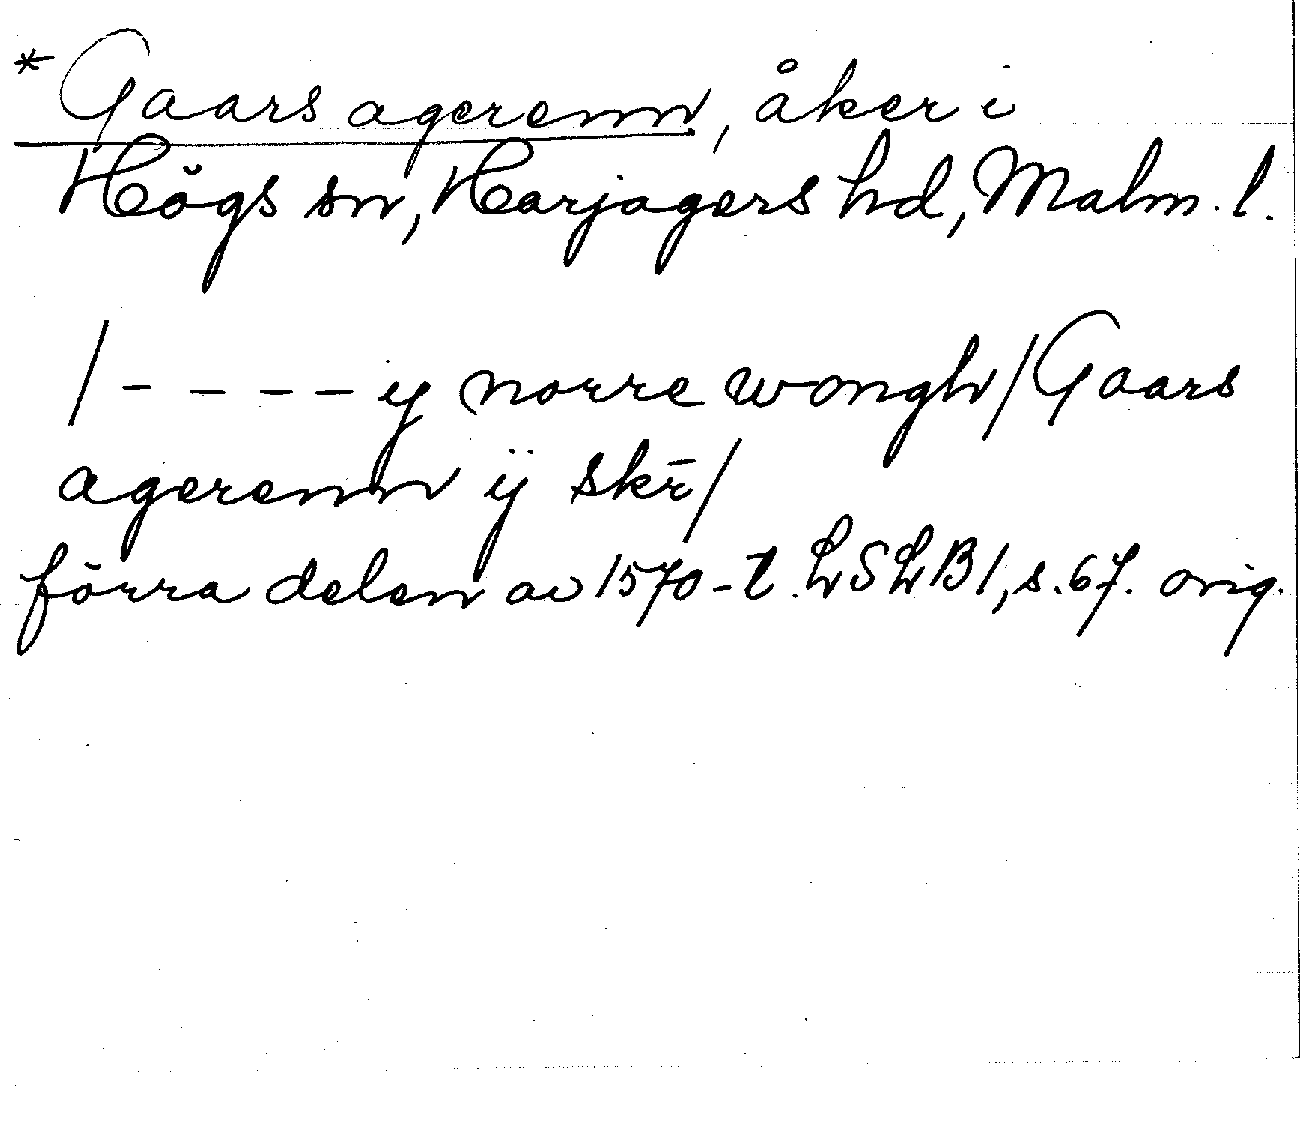 * Gaars agerenn, åker i
Högs sn, Harjagers hd, Malm. l.
/- - - - y norre wongh/Gaars
agerenn ÿ skr̄/
förra delen av 1570-t. LSLB1, s. 67. orig.